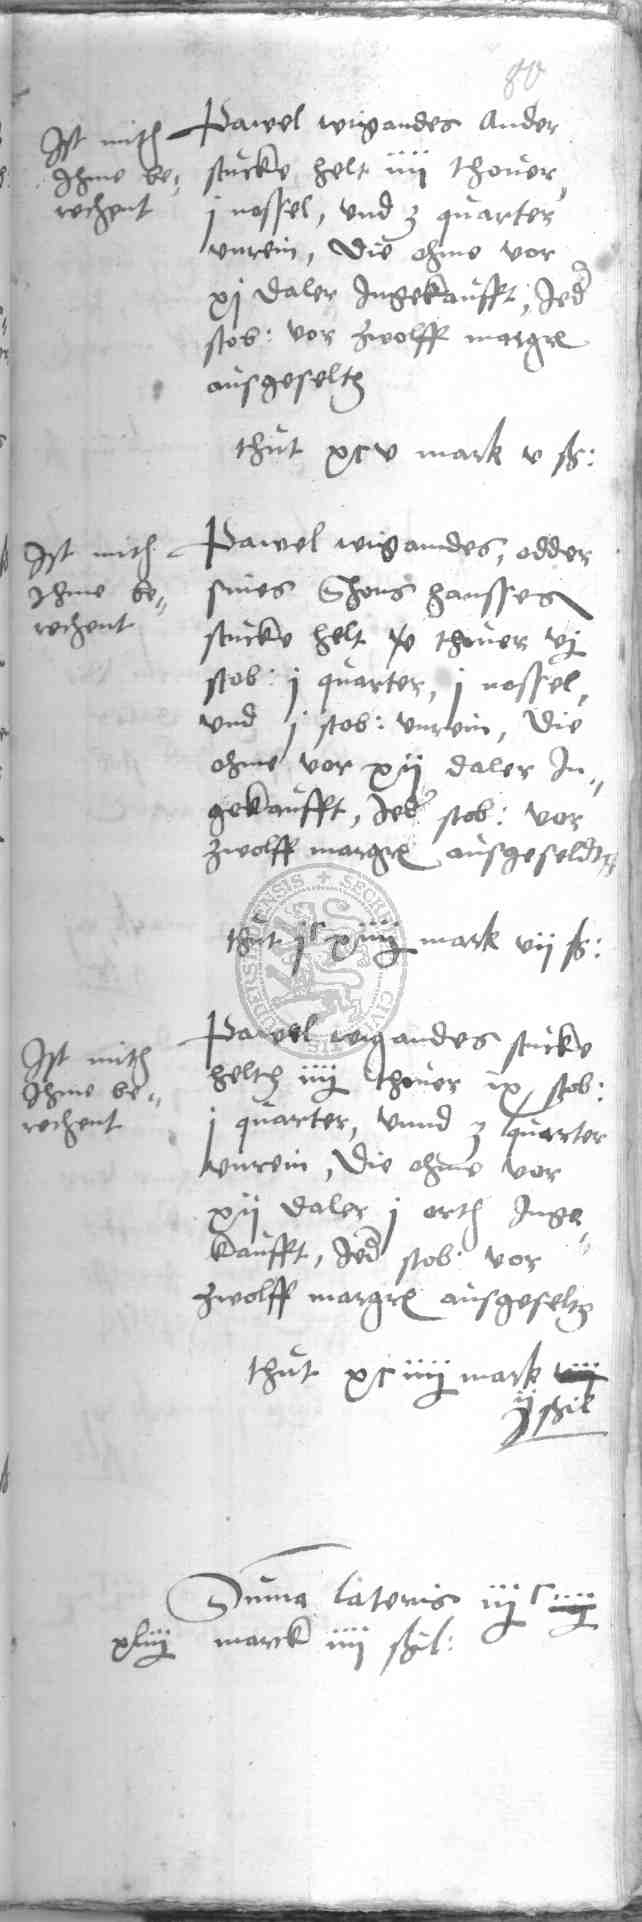 80
Ist mith
Ihme be„
rechent
Pawel wigandes Ander
stucke helt iiij thover
j nossel, vnd 3 quarter
vnrein, Die ohme vor
xj daler Ingekaufft, Jeder
stob: vor zwolff margr
ausgeseltz
thut xcv mark v ß:
Ist mith
Ihme be„
rechent
Pawel wigandes, odder
sines Shons Hansses
stucke helt thover vj
stob: j quarter, j nossel,
vnd j stob: vnrein, Die
ohme vor xij daler In„
gekaufft, Jeder stob: vor
zwolff margr ausgeseldtz
thut jc xiiij mark vij ß:
Ist mith
Ihme be„
rechent
Pawel wigandes stucke
heltz iiij thover ix stob:
j quarter, vnnd 3 quarter
vnrein, Die ohme vor
xij daler j orth Inge„
kaufft, Jeder stob: vor
zwolff margr ausgeseltz
thut xciiij mark
ij ßil
Suma lateris iijc
xliiij marck iiij ßil: